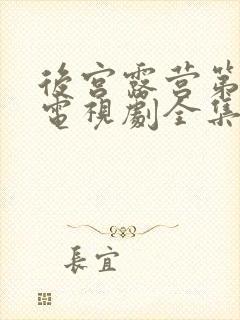 後宮露营第
電視劇全集
長宜